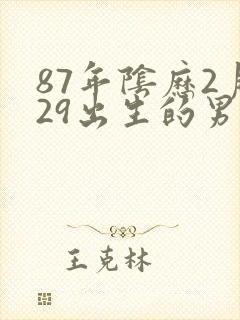 87年陰歷2月
29出生的男
王克林